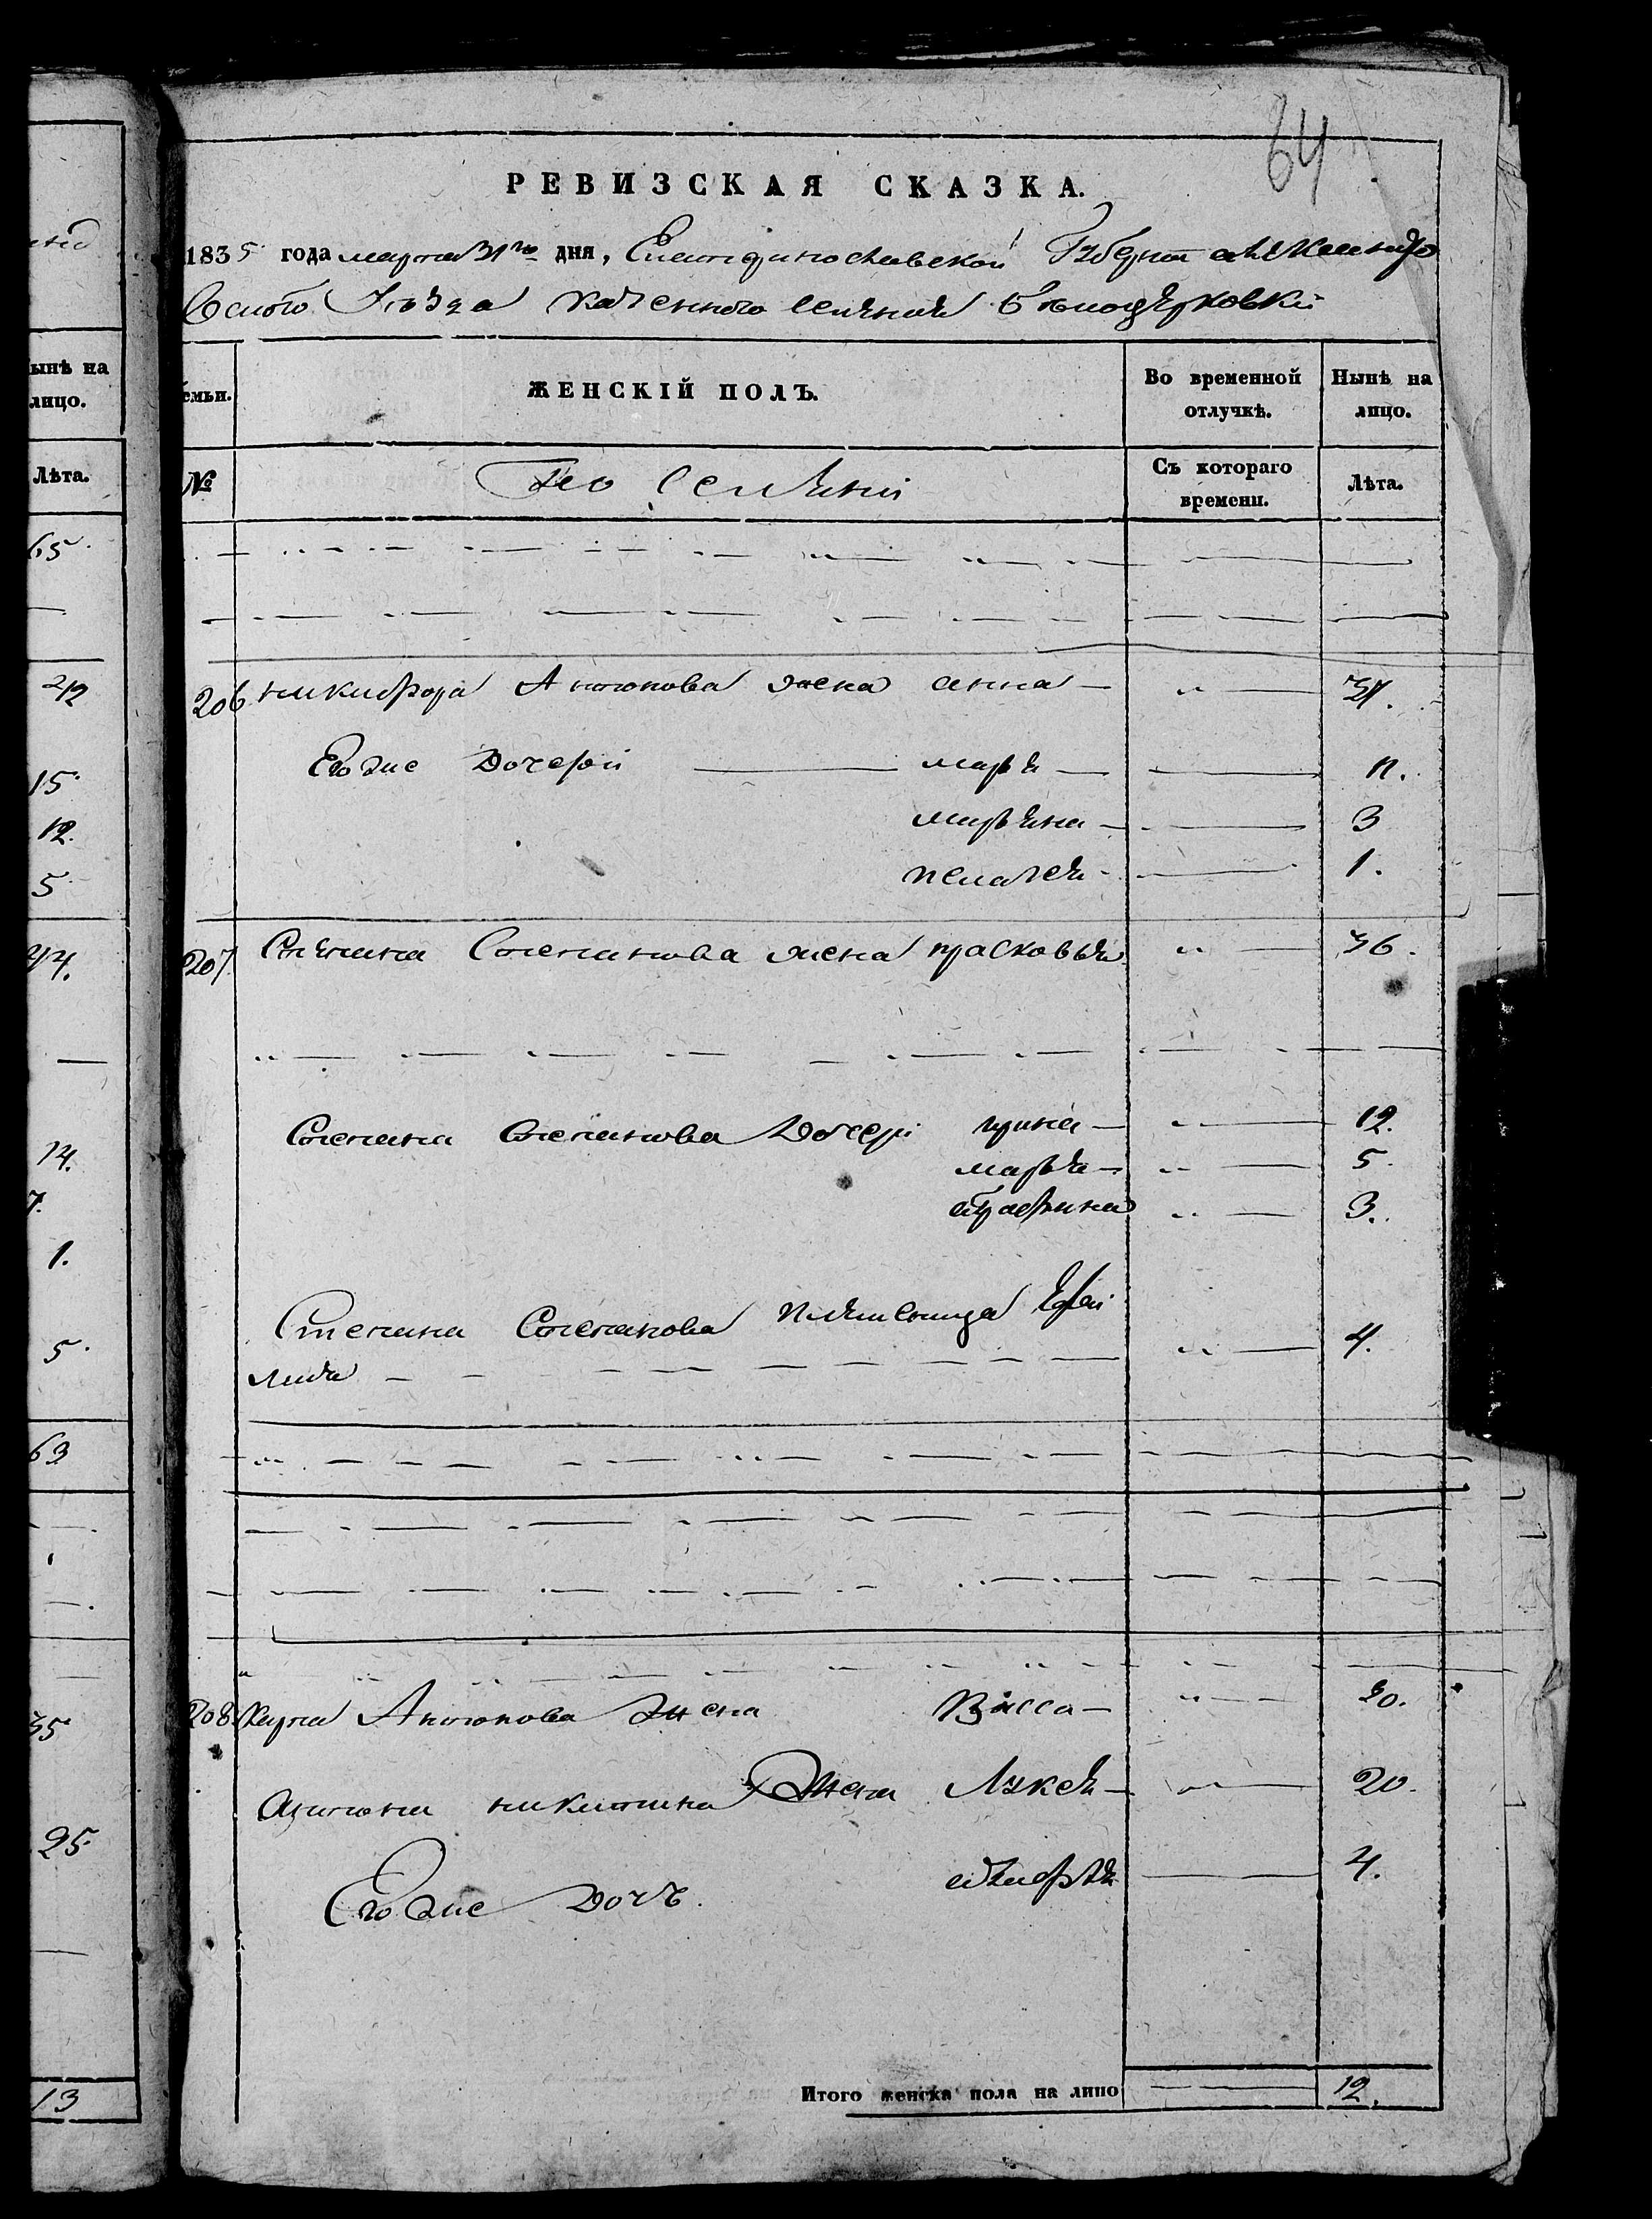 64
РЕВИЗСКАЯ СКАЗКА.
1835 года марта 31го дня, Екатеринославской Губернии Александро
вского Уезда казенного селения Белоцерковки
ынѣ на
лицо.
Лѣта.
65
42
15
12.
5
44.
14.
7.
1.
5
63
35
25
13
емьи.
ЖЕНСКІЙ ПОЛЪ.
Во временной
отлучкѣ.
Нынѣ на
лицо.
№
Съ котораго
времени.
Лѣта.
206 никифора Антонова жена анна 37.
Его же Дочери марья 11.
марьяна 3
пелагея 1.
207 Степана Степанова жена прасковья 36.
Степана Степанова Дочери ирина 12.
марья 5.
аграфина 3.
Степана Степанова племеница 4.
208 Карпа Антонова жена Васса 20.
Антона никитина Жена Лукея 20.
Его же дочь 4.
Итого женска пола на лицо 12.